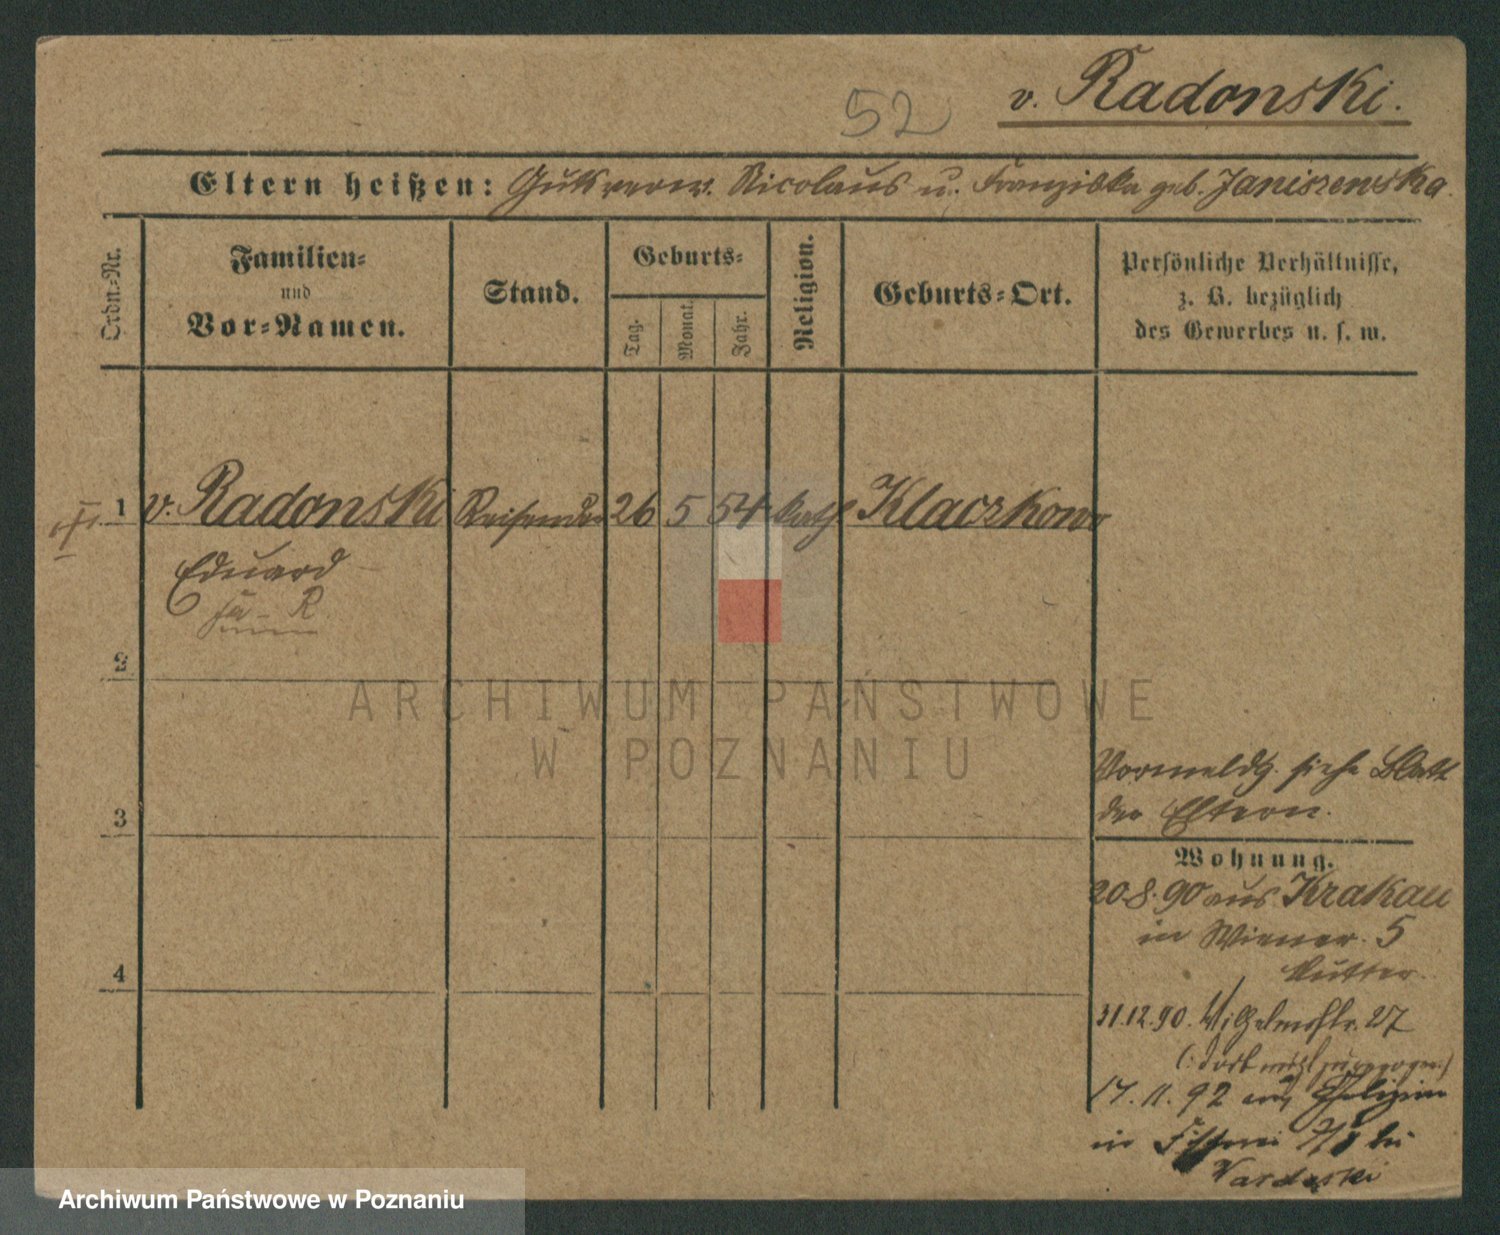 52
v. Radonski.
Eltern heißen: Gutsverw. Nicolaus u. Franziska geb. Janiszewska.
Ordn.-Nr.
Familien- und Vor-Namen.
Stand.
Geburts-
Tag.
Monat.
Jahr.
Religion.
Geburts-Ort.
Persönliche Verhältnisse,
z. B. bezüglich
des Gewerbes u. s. w.
1 v. Radonski Reisender 26 5 54 kath Klaczkowo
Eduard
2
3
4
Vormeldg. siehe Blatt
der Eltern.
Wohnung.
20.8.90 aus Krakau
in Wiener. 5
Mutter.
31.12.90. Wilhelmstr. 27
(: dort nicht zugezogen :)
17. 11. 92 aus Galizien
in
ARCHIWUM PAŃSTWOWE
W POZNANIU
Archiwum Państwowe w Poznaniu